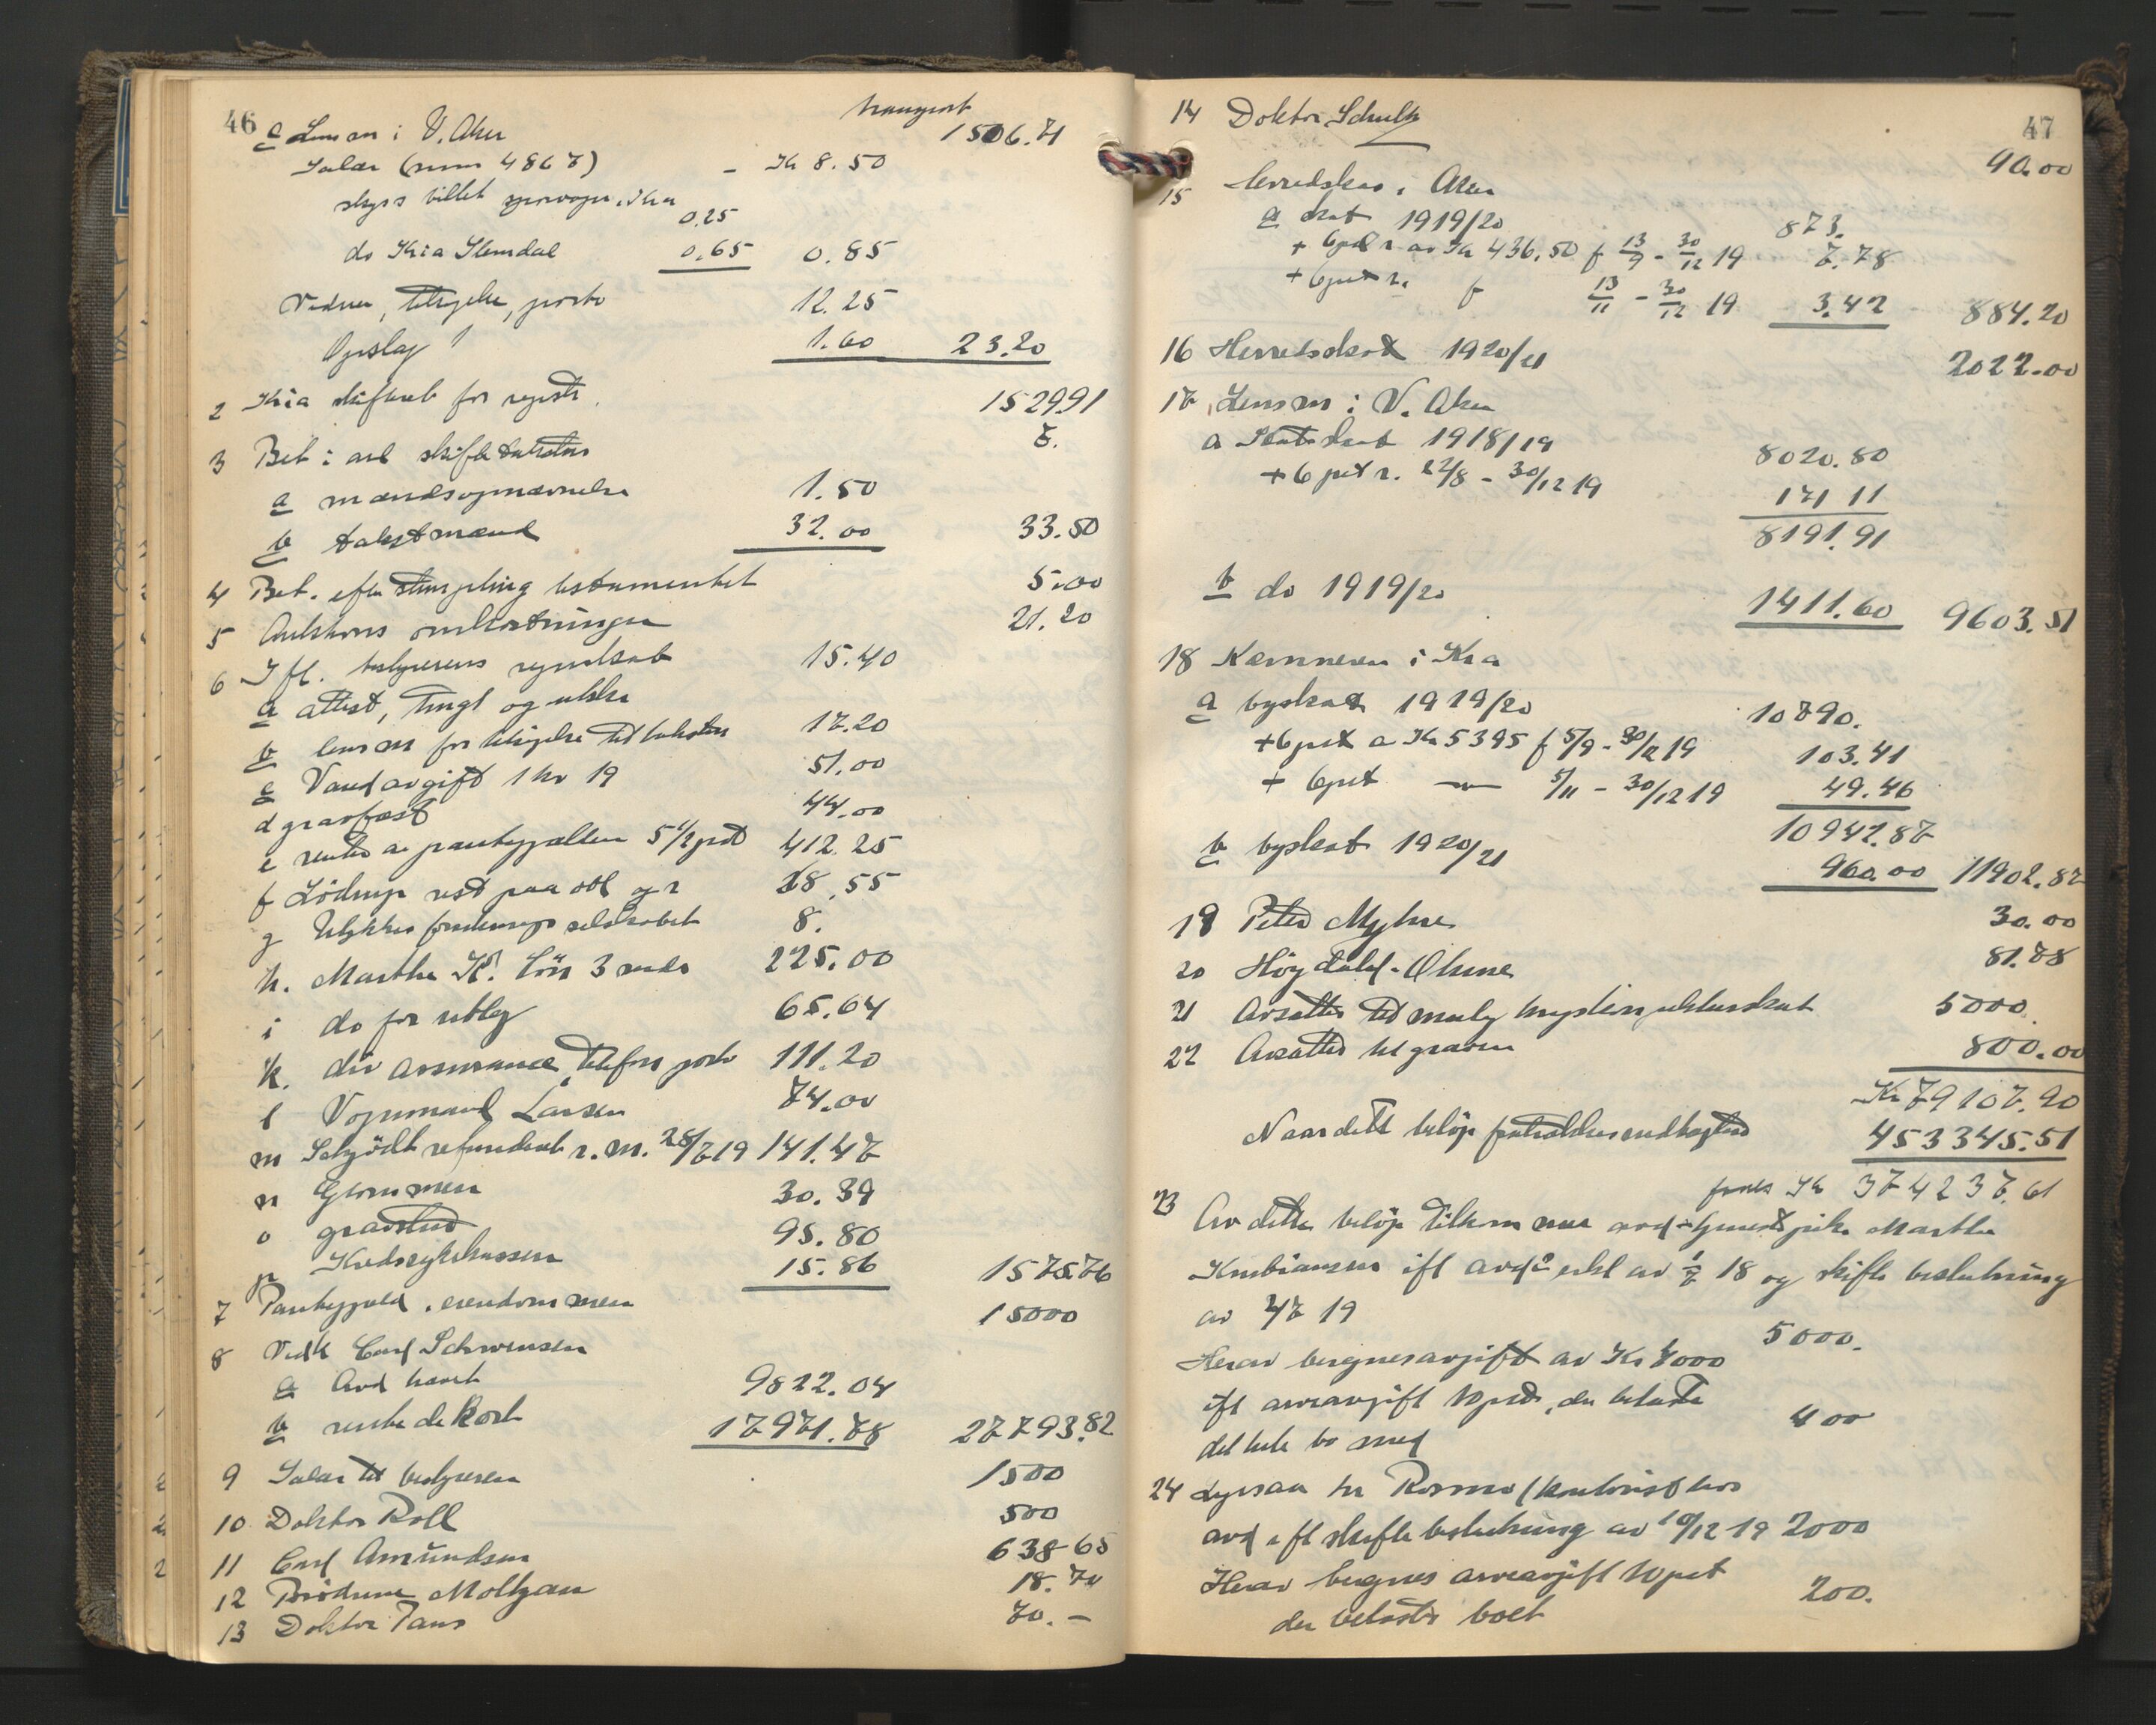 46
transport
c Lensm i V. Aker 1506.71
Salær (mm 4867) - Kr 8.50
skyss billet sporvogn i Kria 0.25
do Kria Slemdal 0.65 0.85
Vidner, tilsigelse, porto 12.25
Opslag 1.60 23.20
1529.91
2 Kria skifteret for registr. 7.
3 Bet i anl skiftetaksten
a mændsopnævnelse 1.50
b takstmænd 32.00 33.50
4 Bet. efter stempling testamentet 5.00
5 Auktions omkostninger 21.20
6 Ifl. bestyrerens regnskab
a attest, tingl og utskr 15.40
b lensm for tilsigelse til taksten 17.20
c Vandavgift 1 hv 19 51.00
d gravfæst 44.00
e renter av pantegjælden 5 1/2 pct 412.25
f Lödrup rest paa obl og r 28.55
g Ulykkes forsikrings selskabet 8.
h. Marthe K. lön 3 mdr 225.00
i do for utlæg 65.64
k. div assurance, telefon porto 111.20
l Vognmand Larsen 74.00
m Schjödt refunderet r. m. 28/7 19 141.47
n Glommen 30.39
o gravsted 95.80
p Kredssykekassen 15.86 1575.76
7 Pantegjæld i eiendommen 15000
8 Vedk Carl Schwensen
a Avd hævet 9822.04
b reste de Kost 17971.78 27793.82
9 Salær til bestyreren 1500
10 Doktor Roll 500
11 Carl Amundsen 638.65
12 Brödrene Moltzau 18.70
13 Doktor Paus 70.-
47
14 Doktor Schultz 90.00
15 Herredskas i Aker
a skat 1919/20 873.
+ 6 pct r av Kr 436.50 f 13/9 - 30/12 19 7.78
+ 6 pct r. f 13/11 - 30/12 19 3.42 884.20
16 Herredsskat 1920/21 2022.00
17 Lensm i V. Aker
a Statsskat 1918/19 8020.80
+ 6 pct r. 22/8 - 30/12 19 171 11
8191.91
b do 1919/20 1411.60 9603.51
18 Kæmneren i Kra
a byskat 1919/20 10790.
+ 6 pct a Kr 5395 f 5/9 - 30/12 19 103.41
+ 6 pct 5/11 - 30/12 19 49.46
10942.87
b byskat 1920/21 960.00 11902.87
19 Peter Myhre 30.00
20 Höydahl-Ohme 81.78
21 Avsættes til mulig krigskonjunkturskat 5000.
22 Avsættes til graven 800.00
Kr 79107.90
Naar dette beløp fratrækkes indtægten 453345.51
faaes Kr 374237.61
23 Av dette beløp tilkommer avd tjenestpike Marthe
Kristiansen ifl avd's erkl av 1/7 18 og skifte beslutning
av 4/7 19 5000.
Herav beregnes avgift av Kr 4000
ifl arveavgift 10 pct, der belaster
det hele bo med 400
24 Lyesaa kr Rosmo (kontorist hos
avd ifl skifte beslutning av 10/12 19 2000
Herav beregnes arveavgift 10 pct
der belaster boet 200.